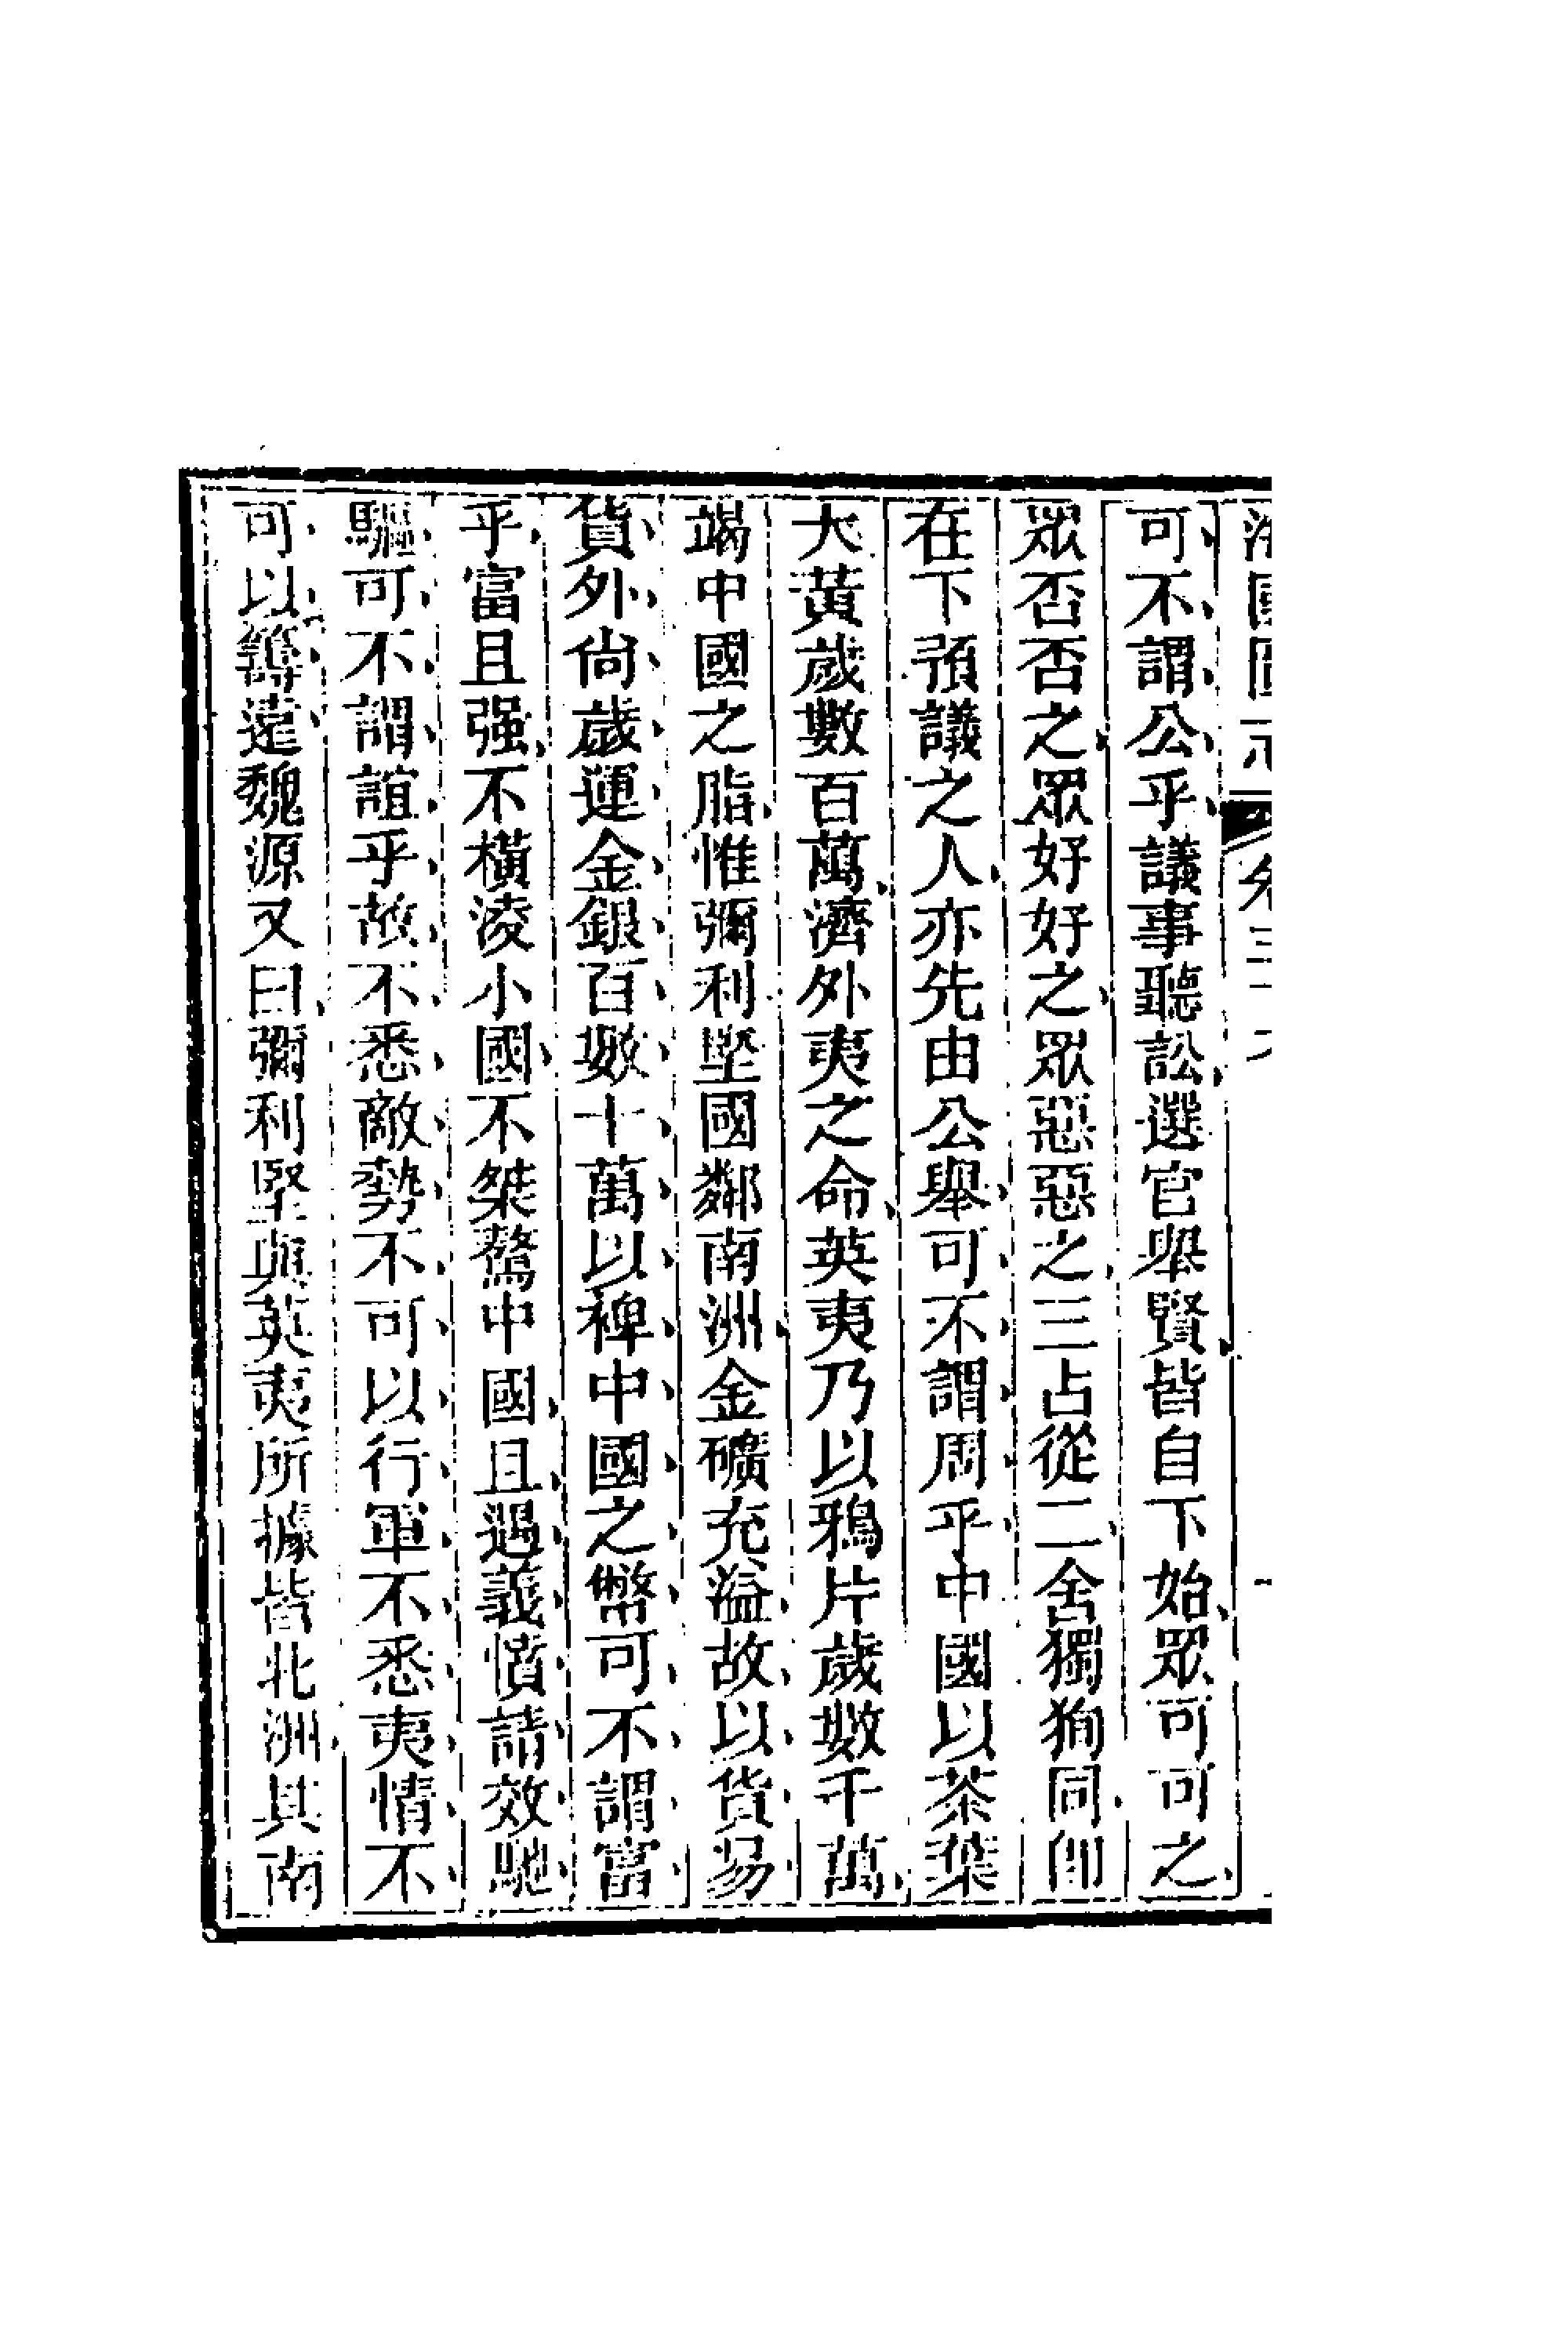 海國圖志 卷三十八
可不謂公乎議事聽訟選官舉賢皆自下始眾可可之
眾否否之眾好好之眾惡惡之三占從二舍獨狥同卽
在下預議之人亦先由公舉可不謂周乎中國以茶葉
大黃歲數百萬濟外夷之命英夷乃以鴉片歲數千萬
竭中國之脂惟彌利堅國鄰南洲金礦充溢故以貨易
貨外尙歲運金銀百數十萬以裨中國之幣可不謂富
乎富且强不橫淩小國不桀驁中國且遇義憤請效馳
驅可不謂誼乎故不悉敵勢不可以行軍不悉夷情不
可以籌遠魏源又曰彌利堅與英夷所據皆北洲其南